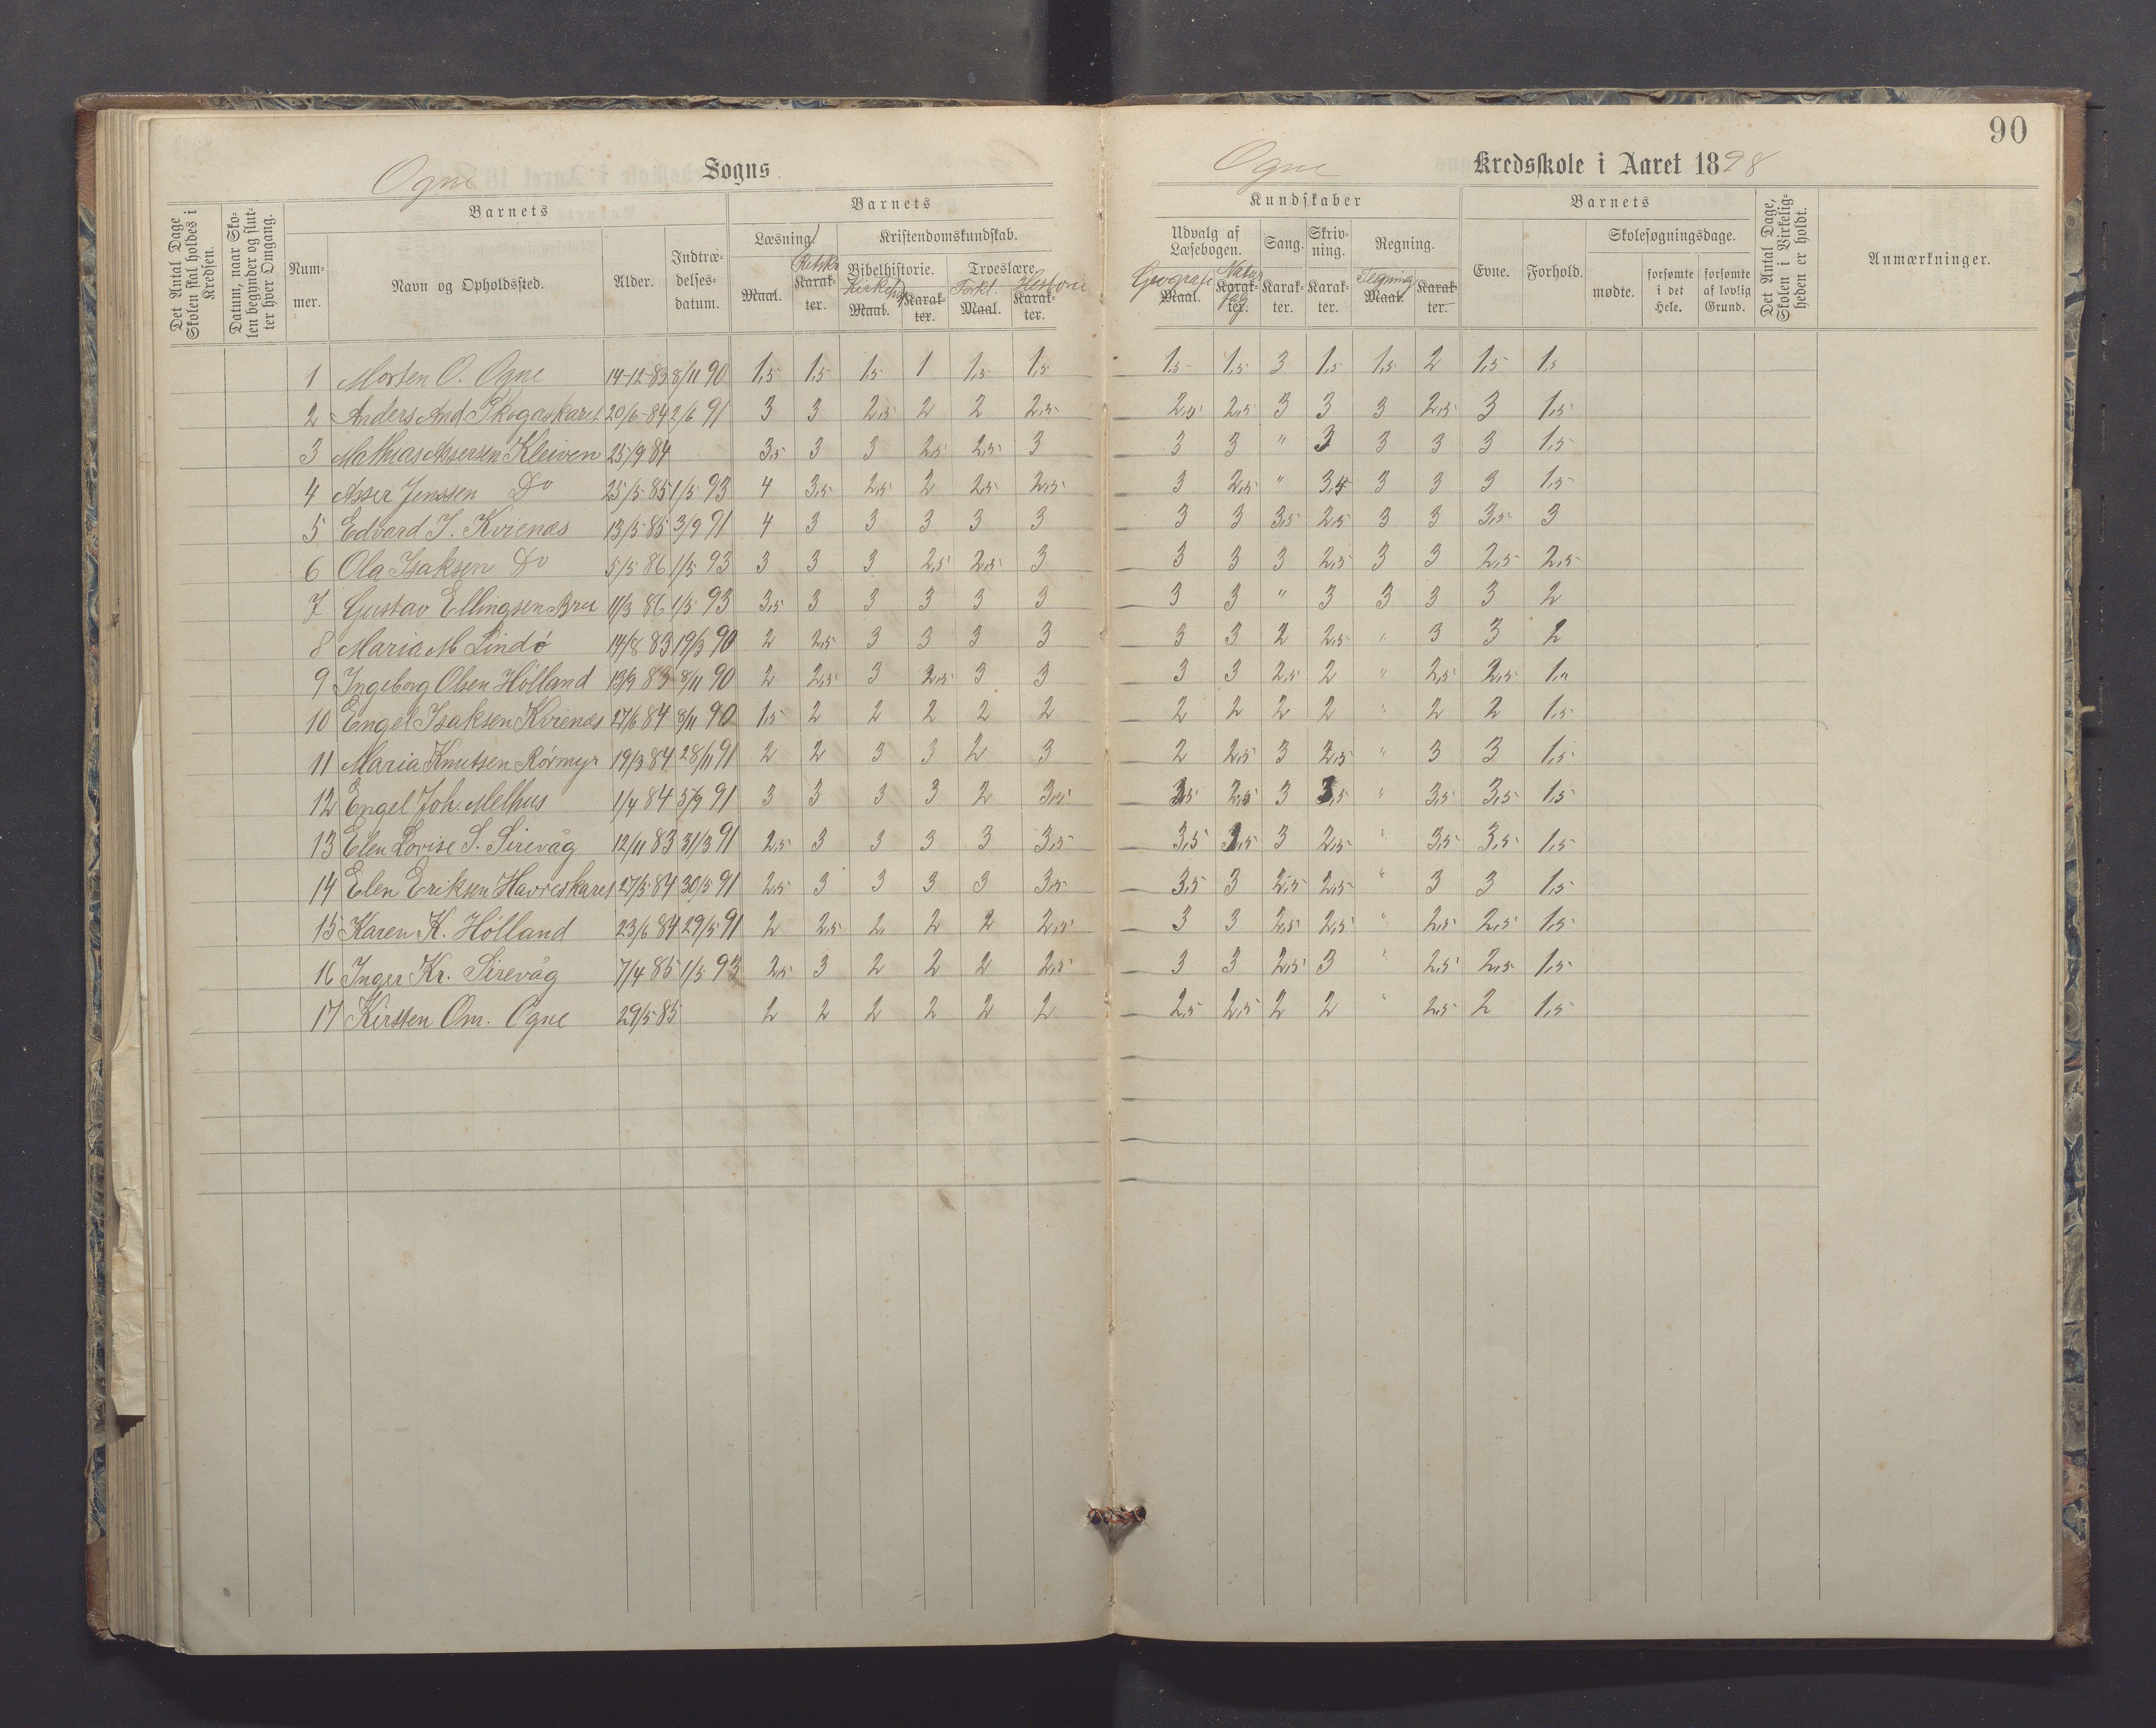 90
Ogne Sogns Ogne Kredsskole i Aaret 1898
Det Antal Dage Skolen skal holdes i Kredsen.
Datum, naar Skolen begynder og slutter hver Omgang.
Barnets Barnets Kundskaber Barnets
Nummer. Navn og Opholdssted. Alder. Indtrædelsesdatum.
Læsning. Kristendomskundskab. Udvalg af Læsebogen. Sang. Skrivning. Regning. Evne. Forhold. Skolesøgningsdage.
Bibelhistorie. Troeslære.
Maal. Retskr Karakter. Kirkeh Maal. Karakter. Forkl. Maal. Historie Karakter. Geografi Maal. Naturfag Karakter. Karakter. Karakter. Tegning Maal. Karakter. mødte. forsømte i det Hele. forsømte af lovlig Grund.
Det Antal Dage, Skolen i Virkeligheden er holdt.
Anmærkninger.
1 Morten O. Ogne 14-12-83 8/11 90 1,5 1,5 1,5 1 1,5 1,5 1,5 1,5 3 1,5 1,5 2 1,5 1,5
2 Anders And Skogaskaret 20/6-84 2/6 91 3 3 2,5 2 2 2,5 2,5 2,5 3 3 3 2,5 3 1,5
3 Mathias Assersen Kleiven 25/9 84 3,5 3 3 2,5 2,5 3 3 3 " 3 3 3 3 1,5
4 Asser Jenssen Do 25/5-85 1/5 93 4 3,5 2,5 2 2,5 2,5 3 2,5 " 3,5 3 3 3 1,5
5 Edvard I. Kvienæs 13/5 85 3/9 91 4 3 3 3 3 3 3 3 3,5 2,5 3 3 3,5 3
6 Ola Isaksen Do 5/5 86 1/5 93 3 3 3 2,5 2,5 3 3 3 3 2,5 3 3 2,5 2,5
7 Gustav Ellingsen Bru 11/3 86 1/5 93 3,5 3 3 3 3 3 3 3 " 3 3 3 3 2
8 Maria M Lindø 14/8 83 19/3 90 2 2,5 3 3 3 3 3 3 2 2,5 " 3 3 2
9 Ingeborg Olsen Hölland 13/9 83 8/11 90 2 2,5 3 2,5 3 3 3 3 2,5 2 " 2,5 2,5 1,"
10 Engel Isaksen Kvienæs 27/6 84 8/11 90 1,5 2 2 2 2 2 2 2 2 2 " 2 2 1,5
11 Maria Knutsen Rörmyr 19/3 84 28/11 91 2 2 3 3 2 3 2 2,5 3 2,5 " 3 3 1,5
12 Engel Joh. Melhus 1/4 84 3/9 91 3 3 3 3 2 3,5 3,5 2,5 3 3,5 " 3,5 3,5 1,5
13 Elen Lovise S. Sirevåg 12/11 83 31/3 91 2,5 3 3 3 3 3,5 3,5 3,5 3 2,5 " 3,5 3,5 1,5
14 Elen Eriksen Havreskaret 27/5 84 30/5 91 2,5 3 3 3 3 3,5 3,5 3 2,5 2,5 " 3 3 1,5
15 Karen K. Hölland 23/6 84 29/5 91 2 2,5 2, 2 2 2,5 3 3 2,5 2,5 " 2,5 2,5 1,5
16 Inger Kr. Sirevåg 7/4 85 1/5 93 2,5 3 2 2 2 2,5 3 3 2,5 3 " 2,5 2,5 1,5
17 Kirsten Om. Ogne 29/5 85 2 2 2 2 2 2 2,5 2,5 2 2 " 2,5 2 1,5